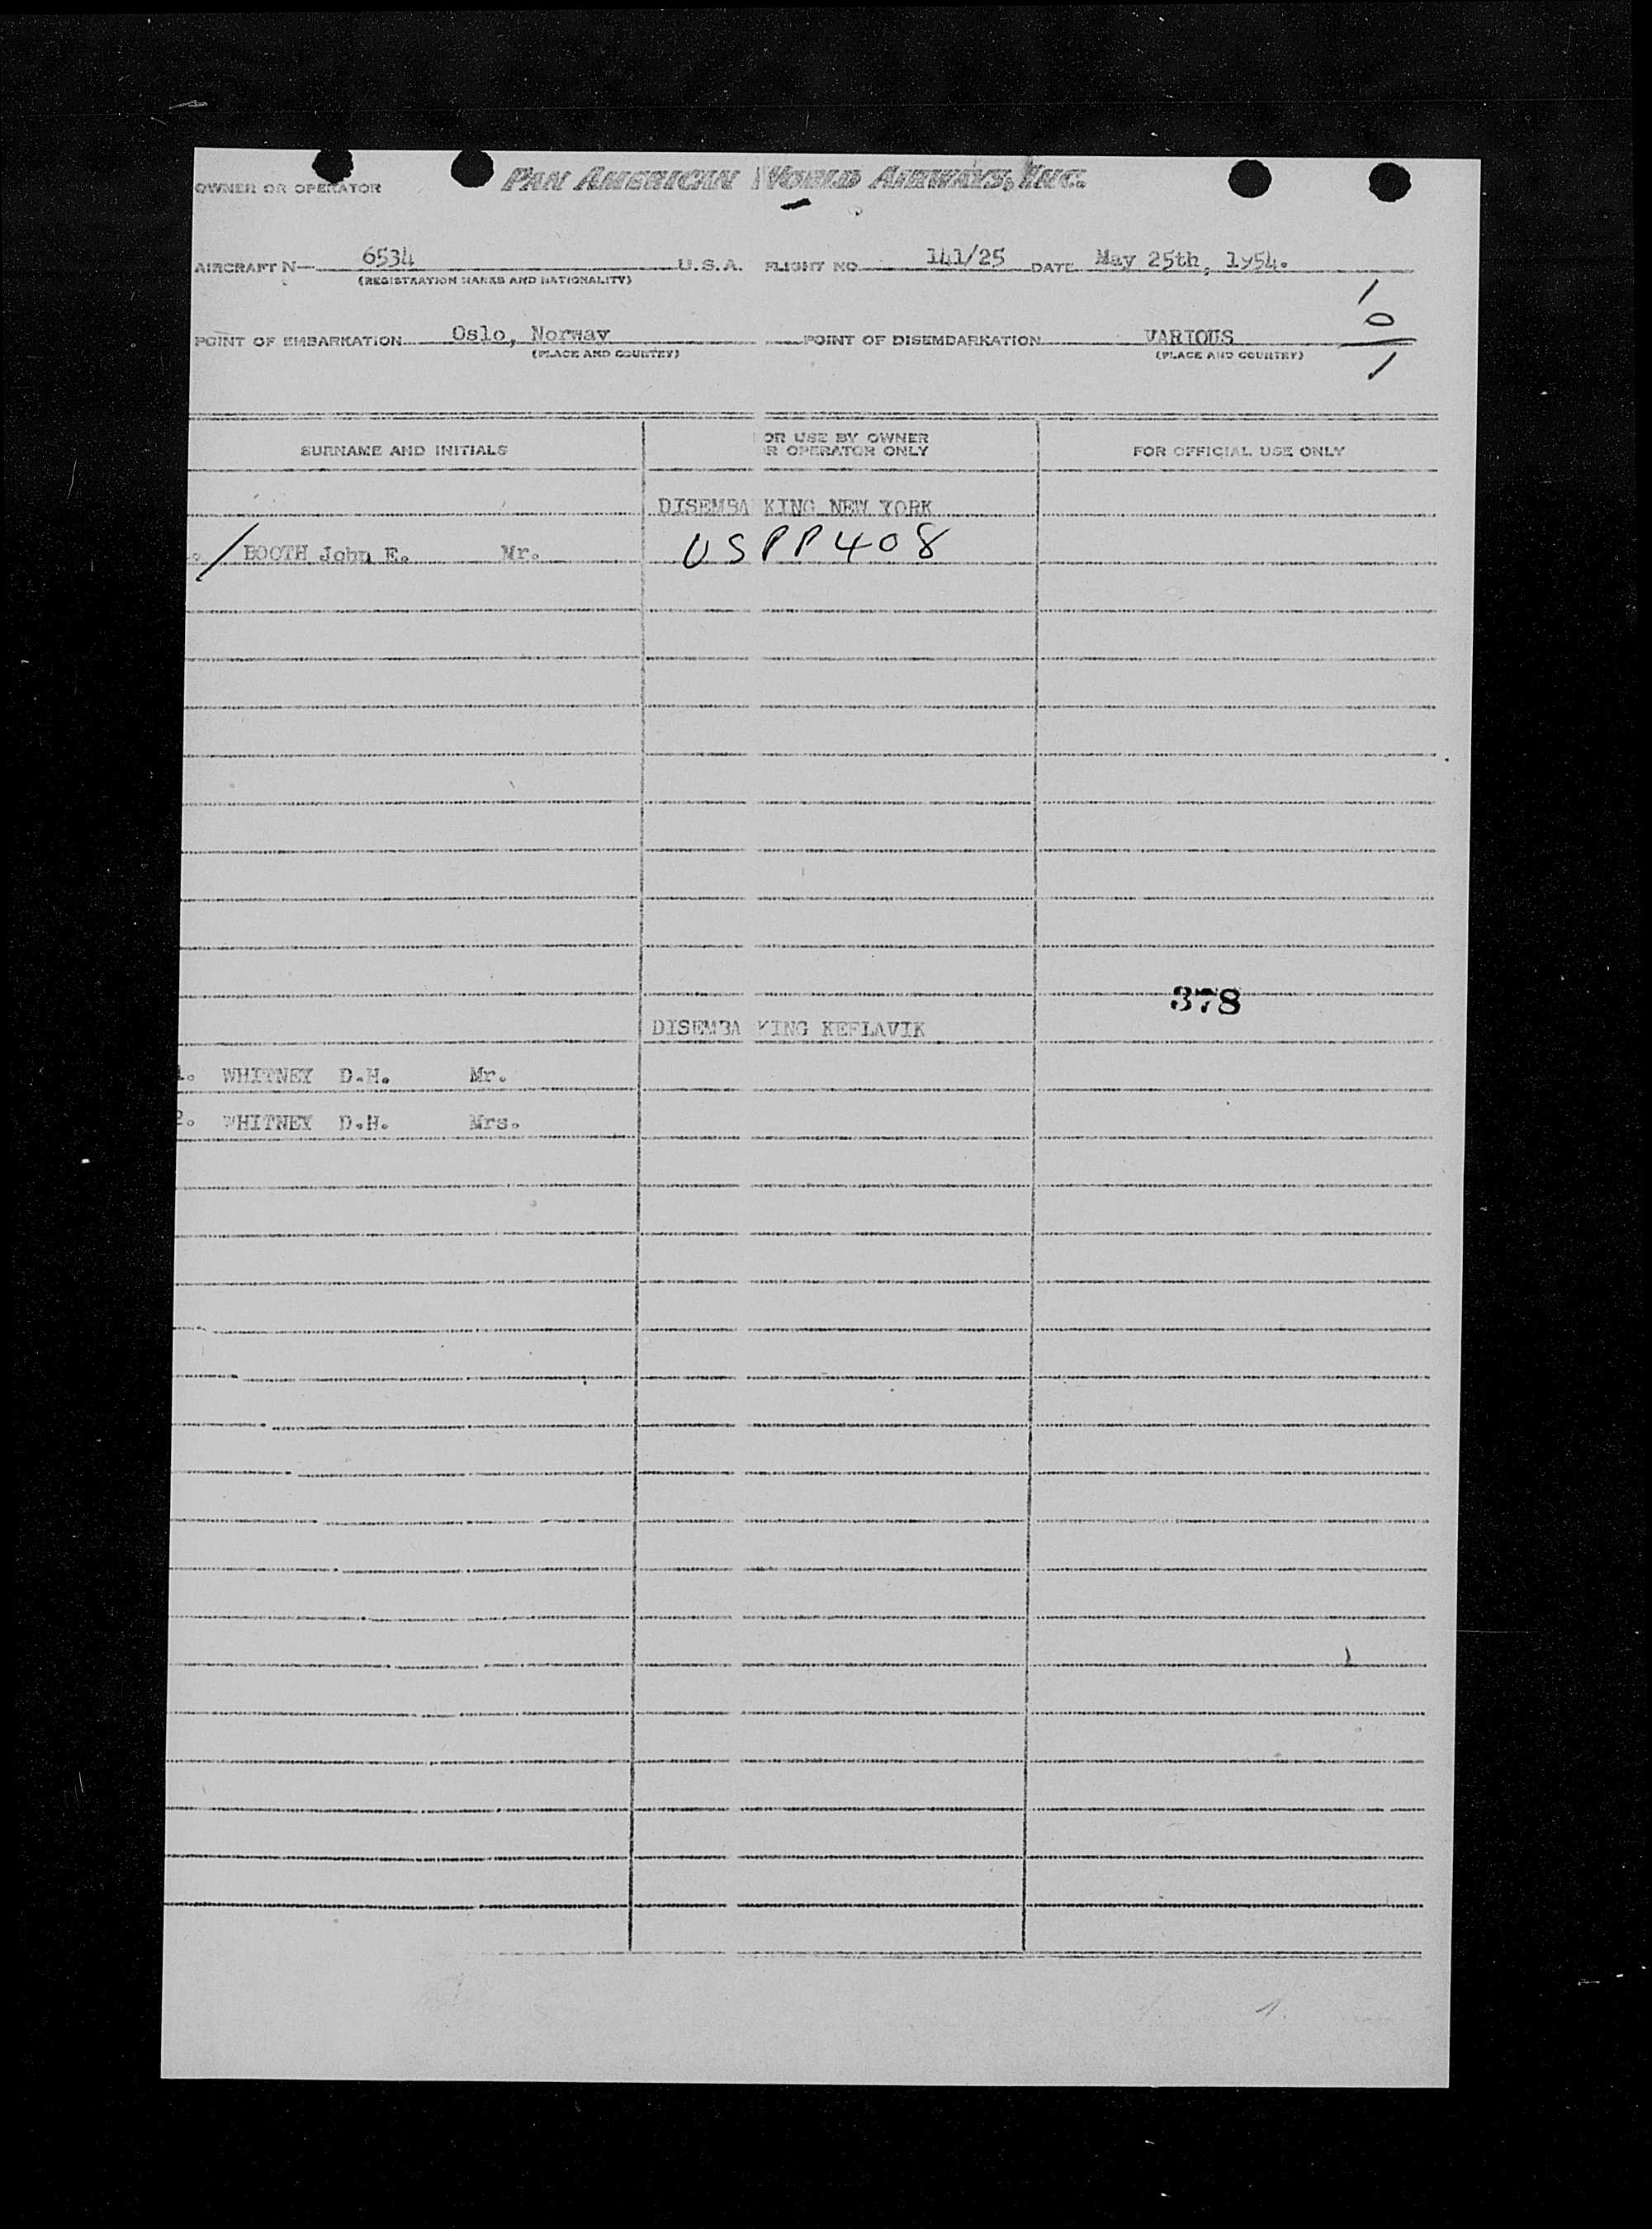 OWNER OR OPERATOR PAN AMERICAN WORLD AIRWAYS, INC.
AIRCRAFT N- 6534 U.S.A. FLIGHT NO 141/25 DATE May 25th, 1954.
(REGISTRATION MARKS AND NATIONALITY)
POINT OF EMBARKATION Oslo, Norway POINT OF DISEMBARKATION VARIOUS
(PLACE AND COUNTRY) (PLACE AND COUNTRY)
1
0
1
SURNAME AND INITIALS OR USE BY OWNER R OPERATOR ONLY FOR OFFICIAL USE ONLY
DISEMBA KING NEW YORK
/ BOOTH John E. Mr. USPP408
378
DISEMBA KING KEFLAVIK
1. WHITNEY D.H. Mr.
2. WHITNEY D.H. Mrs.